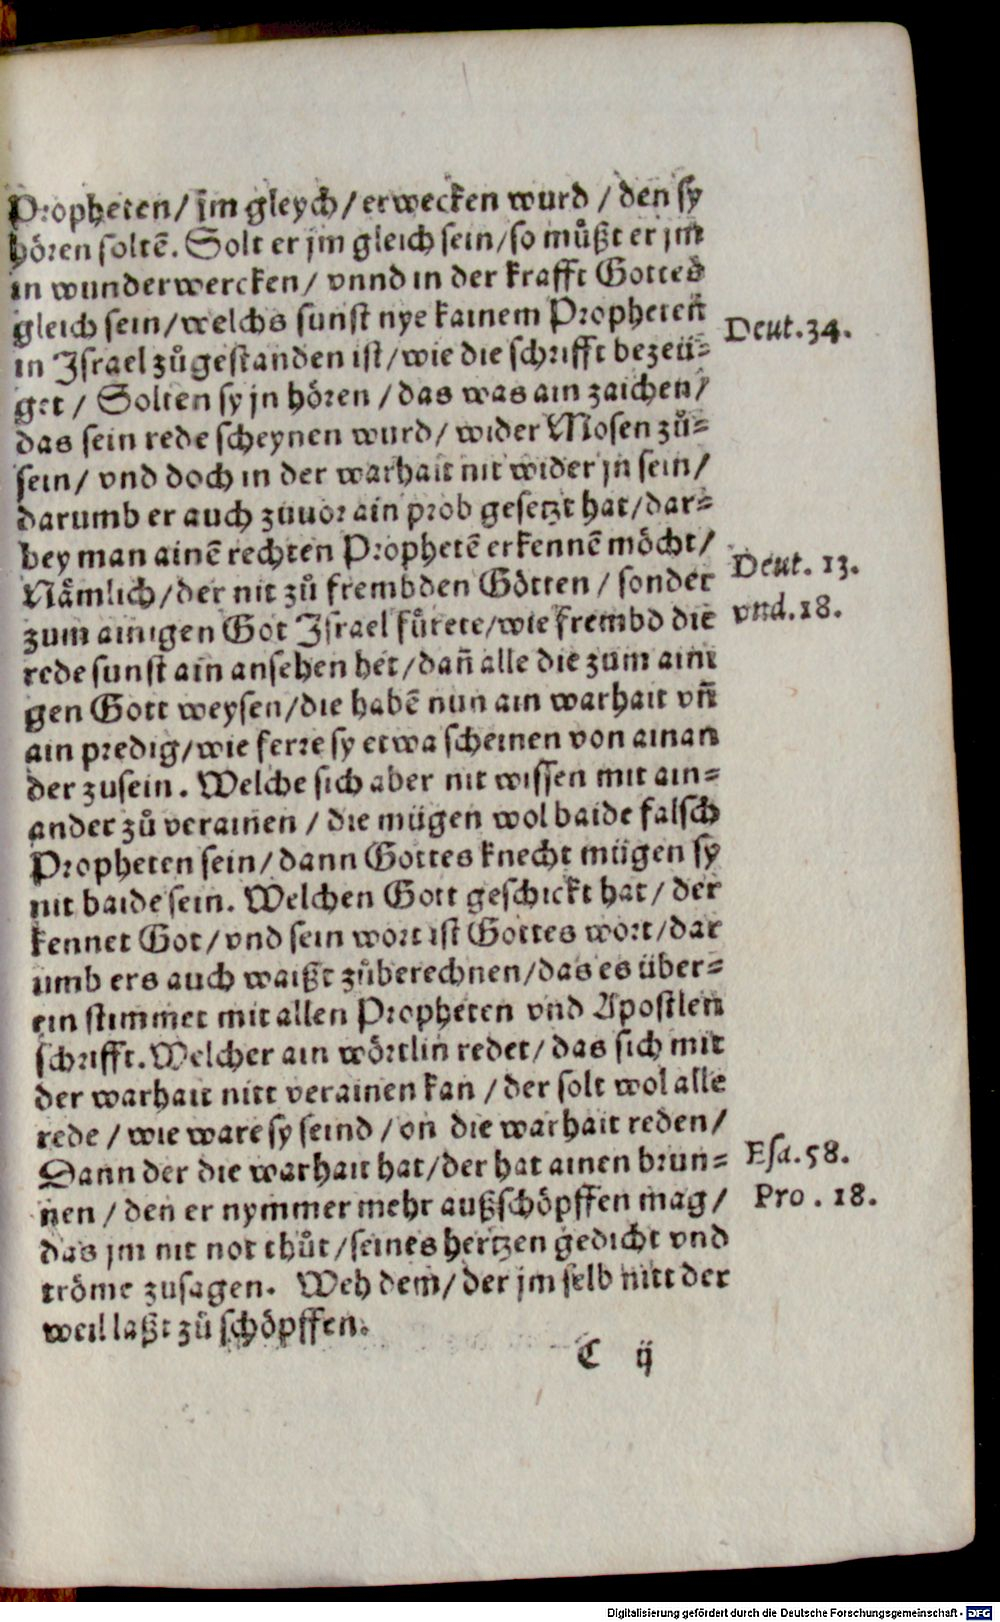 Propheten/ jm gleych/ erwecken wurd / den sy
hören soltē. Solt er jm gleich sein/so můßt er jm
in wunderwercken/ vnnd in der krafft Gottes
gleich sein/welchs sunst nye kainem Propheten
Deut.34.
in Jsrael zůgestanden ist/wie die schrifft bezeü-
get / Solten sy jn hören /das was ain zaichen/
das sein rede scheynen wurd/ wider Mosen zů-
sein/ vnd doch in der warhait nit wider jn sein/
darumb er auch zuuor ain prob gesetzt hat/dar-
bey man ainē rechten Prophetē erkennē möcht/
Deut. 13.
Nämlich/der nit zů frembden Götten / sonder
vnd.18.
zum ainigen Got Jsrael fůrete/wie frembd die
rede sunst ain ansehen het/dañ alle die zum aini
gen Gott weysen/die habē nun ain warhait vñ
ain predig/wie ferre sy etwa scheinen von ainan
der zusein. Welche sich aber nit wissen mit ain-
ander zů verainen / die mügen wol baide falsch
Propheten sein/dann Gottes knecht mügen sy
nit baide sein. Welchen Gott geschickt hat/ der
kennet Got/vnd sein wort ist Gottes wort/dar
umb ers auch waißt zůberechnen/das es über-
ein stimmet mit allen Propheten vnd Apostlen
schrifft. Welcher ain wörtlin redet/das sich mit
der warhait nitt verainen kan /der solt wol alle
rede / wie ware sy seind /on die warhait reden/
Dann der die warhait hat/der hat ainen brun-
Esa.58.
nen / den er nymmer mehr außschöpffen mag/
Pro . 18.
das jm nit not thůt/seines hertzen gedicht vnd
tröme zusagen. Weh dem/ der jm selb nitt der
weil laßt zů schöpffen.
C ij
Digitalisierung gefördert durch die Deutsche Forschungsgemeinschaft - DFG